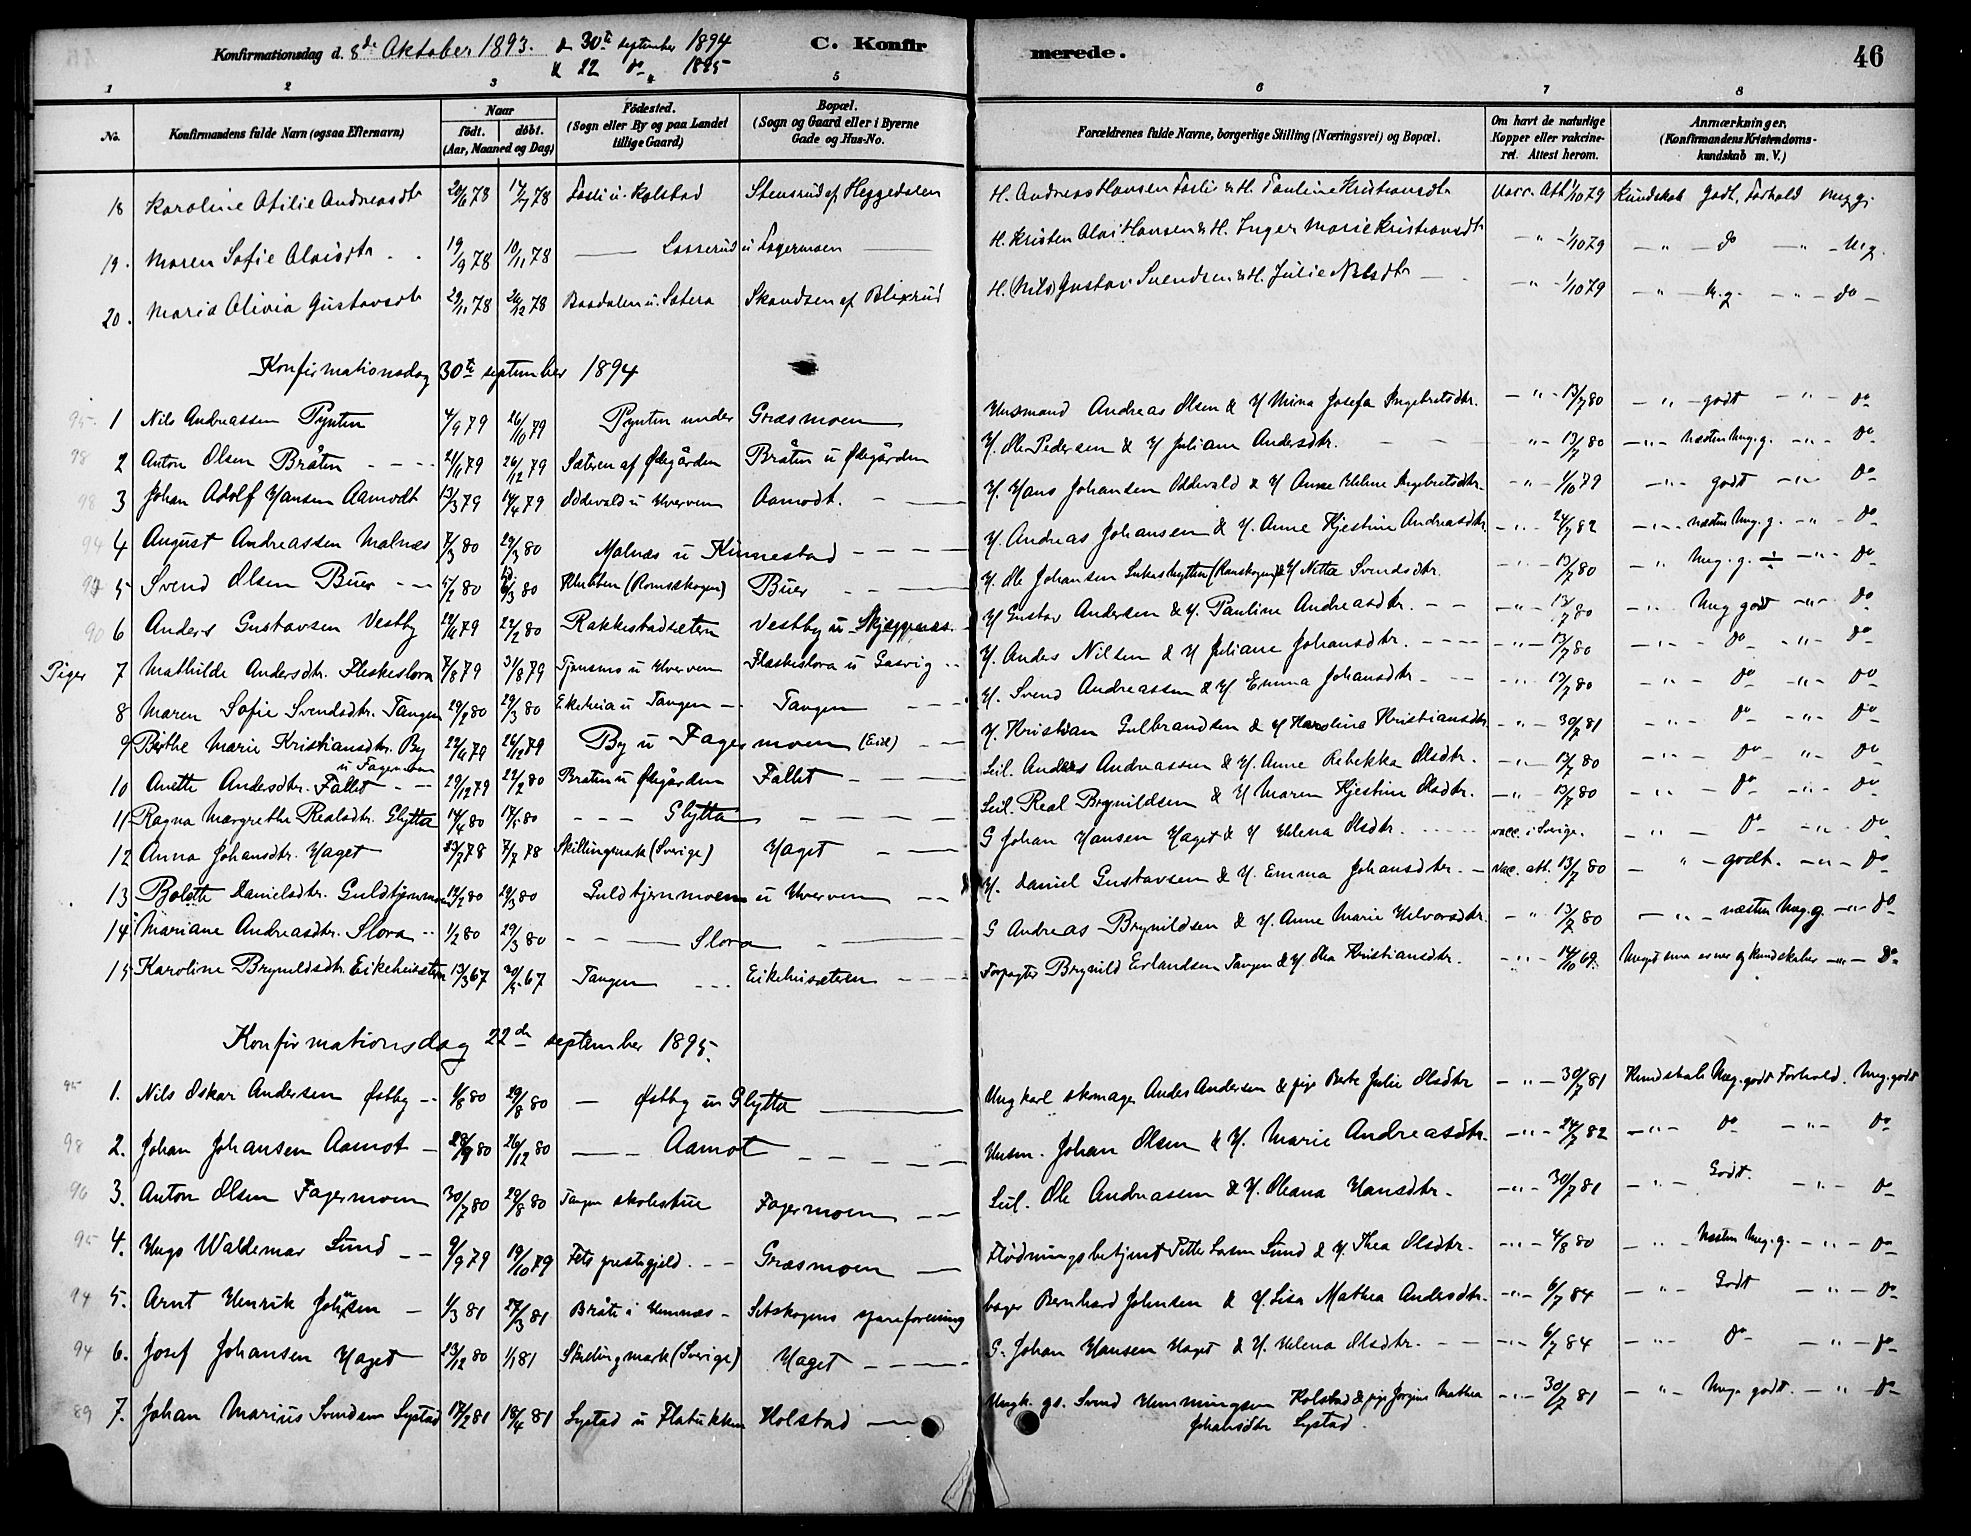 Konfirmationsdag d. 8de Oktober 1893. d 30te september 1894 C. Konfirmerede. 46
d 22 do „ 1895
1 2 3 5 6 7 8
No. Konfirmandens fulde Navn (ogsaa Efternavn) Naar født. døbt. (Aar, Maaned og Dag) Fødested. (Sogn eller By og paa Landet tillige Gaard) Bopæl. (Sogn og Gaard eller i Byerne Gade og Hus-No. Forældrenes fulde Navne, borgerlige Stilling (Næringsvei) og Bopæl. Om havt de naturlige Kopper eller vakcineret. Attest herom. Anmærkninger, (Konfirmandens Kristendomskundskab m. V.)
18 Karoline Otilie Andreasdtr 78 78 Fosli u. Kolstad Stensrud af Heggedalen H. Andreas Hansen Fosli & H. Pauline Kristiansdtr Vacc. Att. 1/10 79 Kundskab Godt, Forhold Meg g.
19. Maren Sofie Olaisdtr 19/9 78 78 Lasserud u Fagermoen H. Kristen Olai Hansen & H. Inger Marie Kristiansdtr - „ - 1/10 79 - „ - do - „ - M.g.
20. Maria Olivia Gustavsdtr 29/11 78 26/12 78 Baadalen u. Sætera Skandsen af Blixrud H. (Nils) Gustav Svendsen & H. Julie Nilsdtr - „ - 1/10 79 - „ - M.g. - „ - do -
Konfirmationsdag 30te september 1894
95 1 Nils Andreassen Pynten 4/9 79 26/10 79 Pynten under Græsmoen Husmand Andreas Olsen & H Mina Josefa Ingebretsdtr. - „ - 13/7 80 - „ - godt - „ - do
98 2 Anton Olsen Bråten 21/11 79 26/12 79 Sæteren af Ødegården Bråten u Ødegården H. Ole Pedersen & H Juliane Andersdtr. - „ - 13/7 80 - „ - næsten Meg.g. - „ - do
98 3 Johan Adolf Hansen Aamodt 13/3 79 14/4 79 Oddevald u Hverven Aamodt. H. Hans Johansen Oddevald & H Anne Helene Ingebretsdtr. - „ - 1/10 79 - „ - godt - „ - do
94 4 August Andreassen Malnæs 7/3 80 29/3 80 Malnæs u Kinnestad H. Andreas Johansen & H. Anne Kjestine Andreasdtr - „ - 24/7 82 - „ - næsten Meg.g. - „ - do
5 Svend Olsen Buer 5/2 80 80 (Romsskogen) Buer H. Ole Johansen & H Netta Svendsdtr. - „ - 13/7 80 - „ Meg.g. ÷ - „ - do
90 6 Anders Gustavsen Vestby 79 22/2 80 Rakkestadsæteren Vestby u Skjeggenæs H Gustav Andersen & H. Pauline Andreasdtr. - „ - 13/7 80 - „ - Meg godt - „ - do
Piger 7 Mathilde Andersdtr. Fleskeslora 7/8 79 31/8 79 Tjernsmo u Hverven Flæskeslora u Gasvig H. Anders Nilsen & H Juliane Johansdtr. - „ - 13/7 80 - „ - do - „ - do
8 Maren Sofie Svendsdtr. Tangen 29/2 80 29/3 80 Ekeheia u Tangen Tangen H. Svend Andreassen & H Emma Johansdtr - „ - 13/7 80 - „ - do - „ - do
9 Berthe Marie Kristiansdtr. By 79 26/12 79 By u Fagermoen (Eid) H. Kristian Gulbrandsen & H Karoline Kristiansdtr - „ - 30/7 81 - „ - do - „ - do
u Fagermoen
10 Anette Andersdtr. Fallet 29/12 79 22/2 80 Bråten u Ødegården Fallet Seil. Anders Andreassen & H. Anne Rebekka Olsdtr. - „ - 13/7 80 - „ - do „ - do
11 Ragna Margrethe Realsdtr. Glytta 14/4 80 17/5 80 Glytta Seil. Real Brynildsen & H Maren Kjestine Olsdtr. - „ - 13/7 80 - „ - do - „ - do
12 Anna Johansdtr. Haget 78 7/7 78 Skillingmark (Sverige) Haget G Johan Hansen Haget & H Helena Olsdtr. vacc. i Sverige. - „ - do - „ - do
13 Bolette Danielsdtr. Guldtjernmoen 12/2 80 29/3 80 Guldtjernmoen u Hverven H. Daniel Gustavsen & H. Emma Johansdtr. - Vac. att. 13/7 80 - „ - godt. - „ - do
14 Mariane Andreasdtr. Slora 1/2 80 29/3 80 Slora G Andreas Brynildsen & H. Anne Marie Halvorsdtr. - „ - 13/7 80 - „ - næsten Meg.g. - „ - do
15 Karoline Brynildsdtr. Eikeheisæteren 13/3 67 67 Tangen Eikeheisæteren Forpagter Brynild Erlandsen Tangen & H. Olea Kristiansdtr. - „ - 14/10 69. Meget sma evner og kundskaber - „ - do
Konfirmationsdag 22de september 1895.
95 1. Nils Oskar Andersen Østby 1/8 80 29/8 80 Østby u Glytta Ungkarl skomager Anders Andersen & pige Berte Julie Olsdtr - „ - 30/7 81 Kundskab Meg. godt Forhold. Meg. godt
98 2. Johan Johansen Aamot 28/9 80 26/12 80 Aamot Husm. Johan Olsen & H. Marie Andreasdtr. - „ - 24/7 82 - „ - do - „ - do
96 3. Anton Olsen Fagermoen 30/7 80 29/8 80 Tangen skolestue Fagermoen Seil. Ole Andreassen & H. Oleana Hansdtr. - „ - 30/7 81 - „ - Godt. - „ - do
95 4. Hugo Waldemar Lund 9/9 79 19/10 79 Fets prestegjeld. Græsmoen Flødningsbetjent Petter Larsen Lund & H. Thea Olsdtr. - „ - 4/8 80 - „ - Næsten Meg.g. - „ - do
94 5. Arnt Henrik Johnsen 1/3 81 27/3 81 Bråte i Hemnæs Setskogens spareforening bager Bernhard Johnsen & H. Lisa Mathea Andersdtr. - „ - 6/7 84 - „ - Godt - „ - do
94 6. Josef Johansen Haget 23/12 80 1/1 81 Skillingmark (Sverige) Haget G. Johan Hansen Haget & H. Helena Olsdtr. - „ - 6/7 84 - „ - do - „ - do
89 7. Johan Marius Svendsen Lystad 17/2 81 18/4 81 Lystad u Flatukken Holstad Ungk. gs. Svend Hemmingsen Holstad & pige Jorgine Mathea - „ - 30/7 81 - „ - Meg. godt. - „ - do
Johansdtr Lystad.